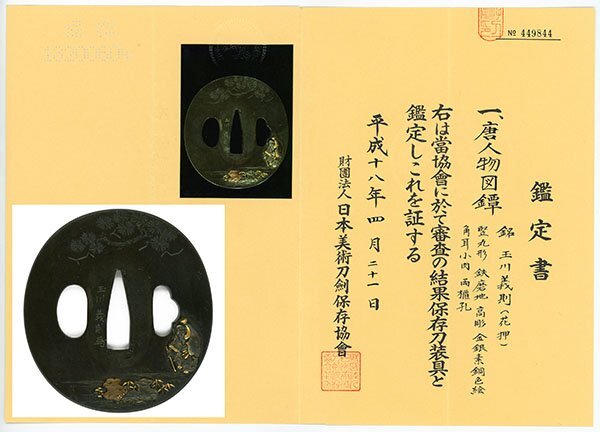 № 449844
鑑定書
一、唐人物図鐔
銘 玉川義則(花押)
竪丸形 鉄磨地 高彫 金銀素銅色絵
角耳小肉 両櫃孔
右は當協會に於て審査の結果保存刀装具と
鑑定しこれを証する
平成十八年四月二十一日
財團法人 日本美術刀劍保存協會